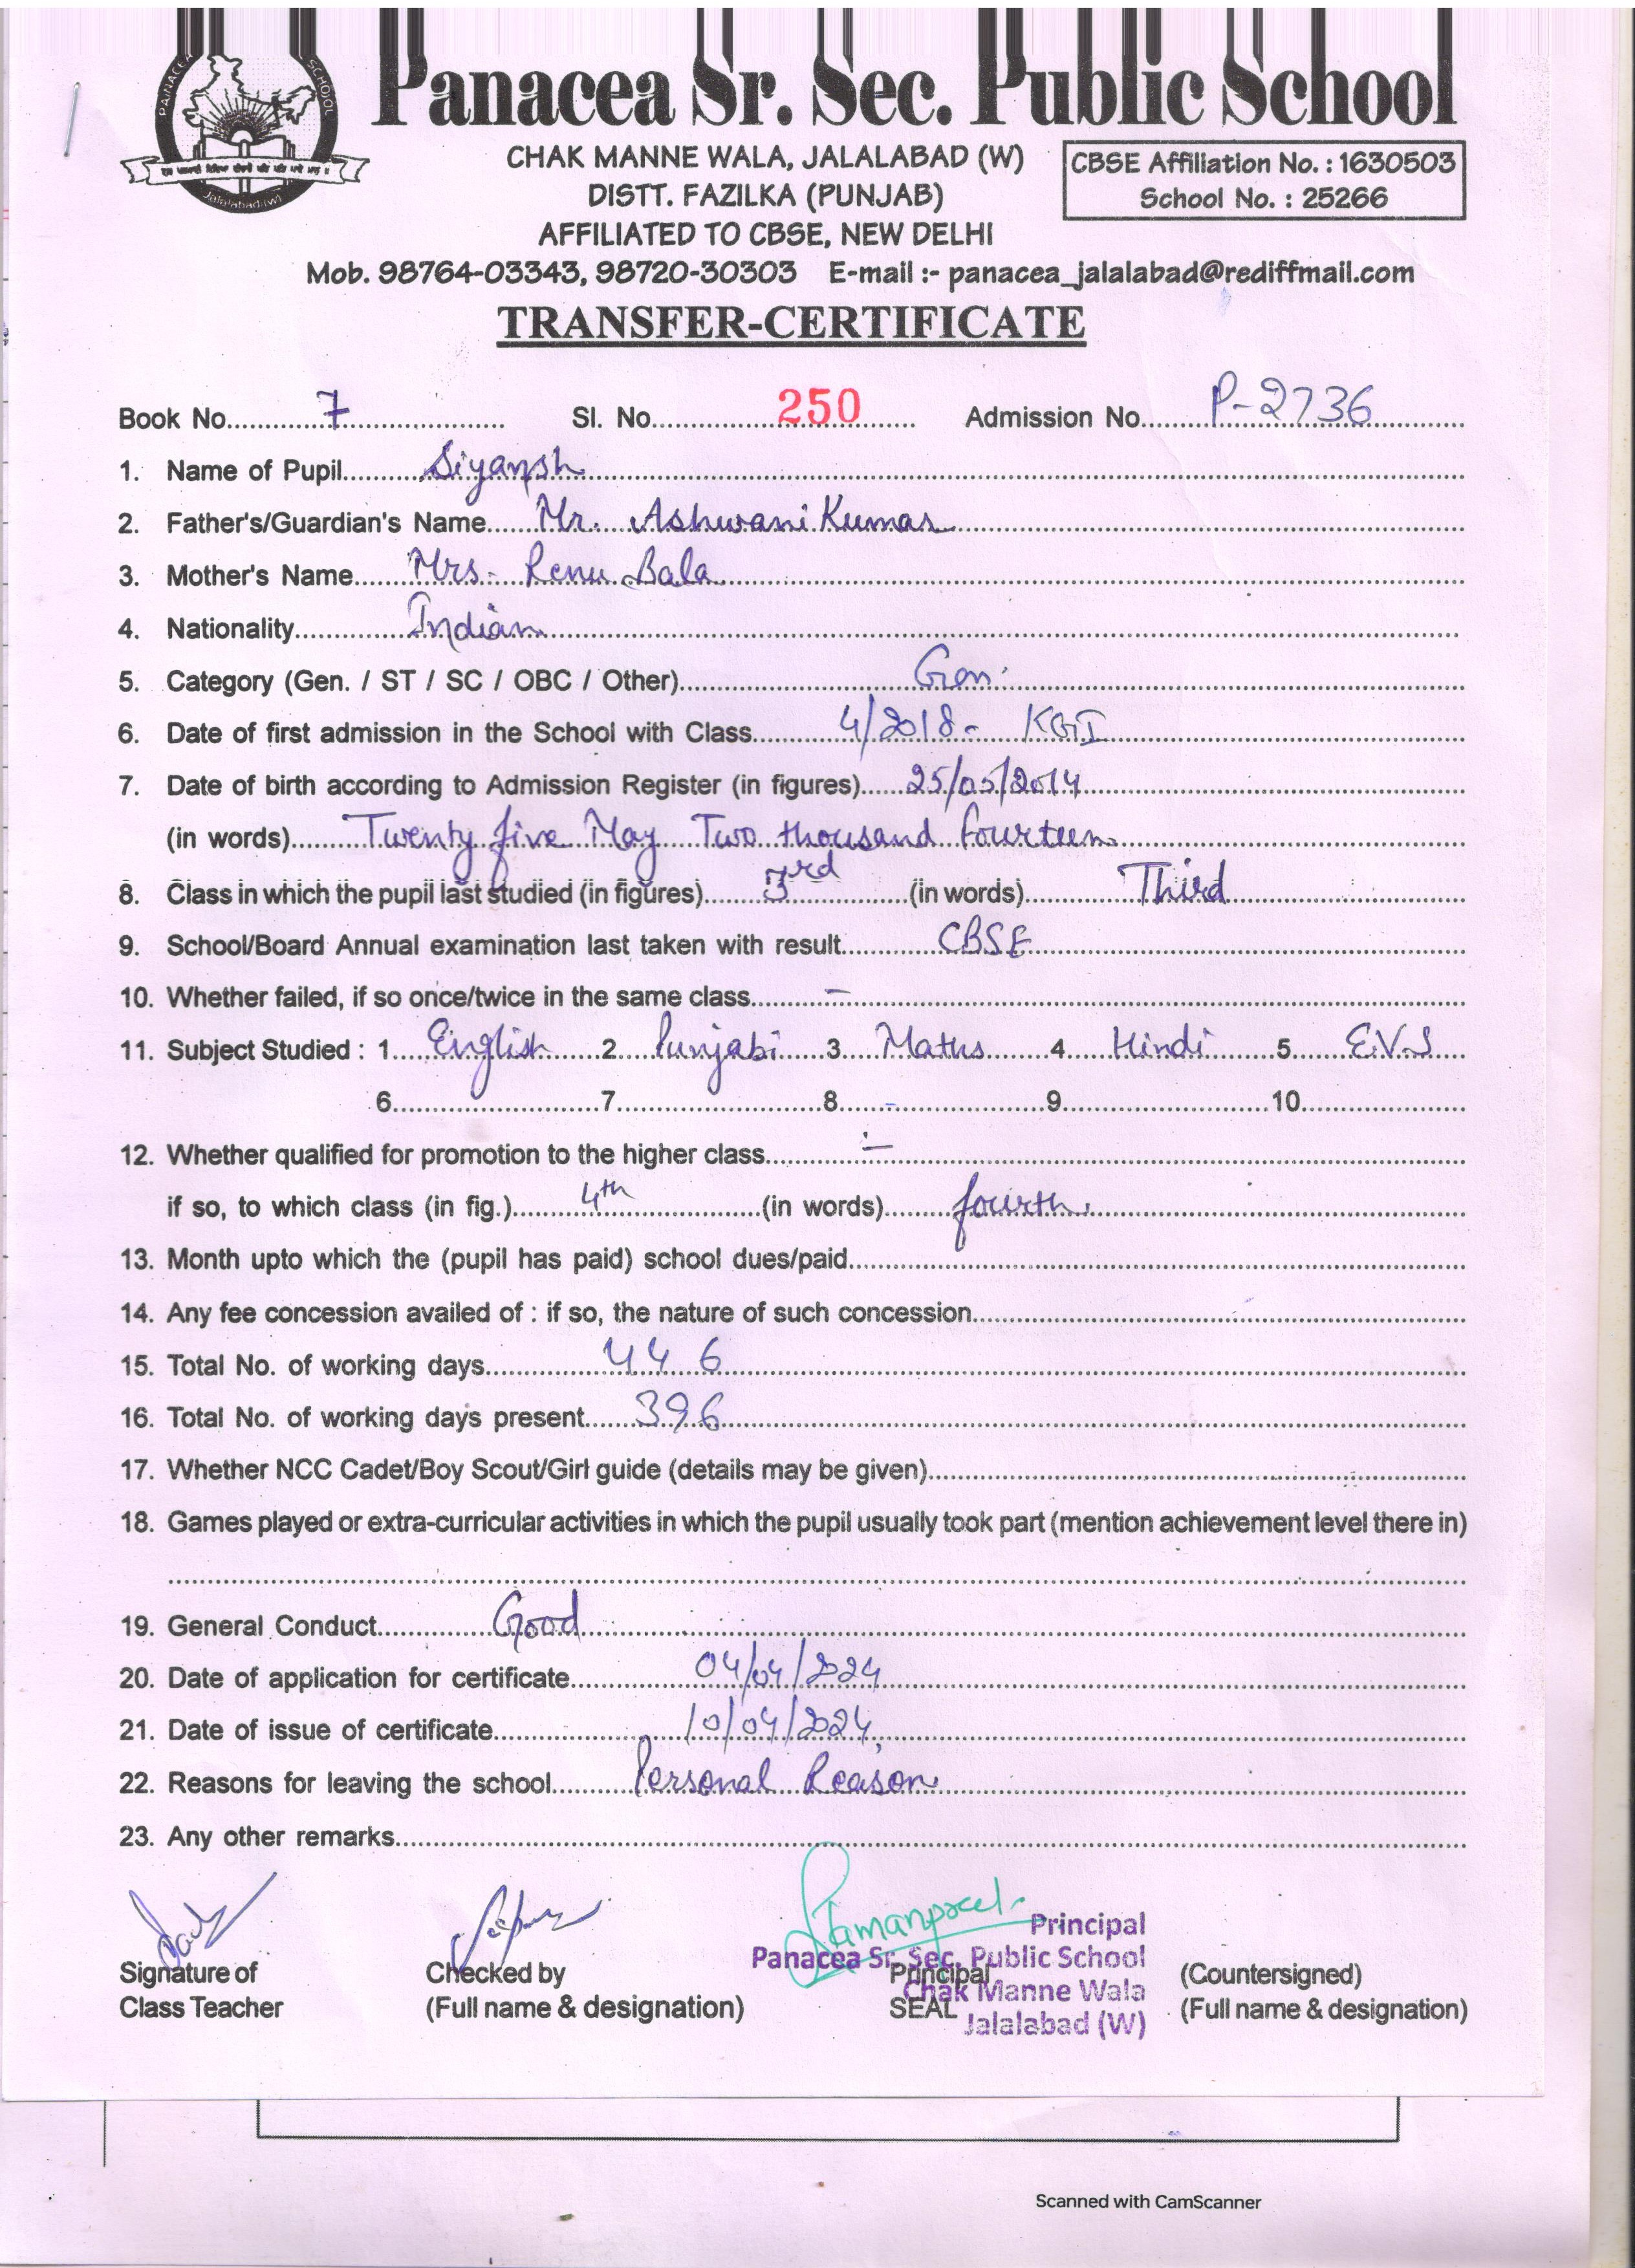 PANACEA SCHOOL
Jalalabad (W)
Panacea Sr. Sec. Public School
CHAK MANNE WALA, JALALABAD (W)
DISTT. FAZILKA (PUNJAB)
AFFILIATED TO CBSE, NEW DELHI
CBSE Affiliation No. : 1630503
School No. : 25266
Mob. 98764-03343, 98720-30303 E-mail :- panacea_jalalabad@rediffmail.com
TRANSFER-CERTIFICATE
Book No. 7 Sl. No. 250 Admission No. P-2736
1. Name of Pupil Siyansh
2. Father's/Guardian's Name Mr. Ashwani Kumar
3. Mother's Name Mrs. Renu Bala
4. Nationality Indian
5. Category (Gen. / ST / SC / OBC / Other) Gen.
6. Date of first admission in the School with Class 4/2018- KGI
7. Date of birth according to Admission Register (in figures) 25/05/2014
(in words) Twenty five May Two thousand fourteen
8. Class in which the pupil last studied (in figures) 3rd (in words) Third
9. School/Board Annual examination last taken with result CBSE
10. Whether failed, if so once/twice in the same class -
11. Subject Studied : 1 English 2 Punjabi 3 Maths 4 Hindi 5 E.V.S
6 7 8 - 9 10
12. Whether qualified for promotion to the higher class -
if so, to which class (in fig.) 4th (in words) fourth
13. Month upto which the (pupil has paid) school dues/paid
14. Any fee concession availed of : if so, the nature of such concession
15. Total No. of working days 446
16. Total No. of working days present 396
17. Whether NCC Cadet/Boy Scout/Girl guide (details may be given)
18. Games played or extra-curricular activities in which the pupil usually took part (mention achievement level there in)
19. General Conduct Good
20. Date of application for certificate 04/04/2024
21. Date of issue of certificate 10/04/2024
22. Reasons for leaving the school Personal Reason
23. Any other remarks
Principal
Panacea Sr. Sec. Public School
Chak Manne Wala
Jalalabad (W)
Signature of
Class Teacher
Checked by
(Full name & designation)
Principal
SEAL
(Countersigned)
(Full name & designation)
Scanned with CamScanner